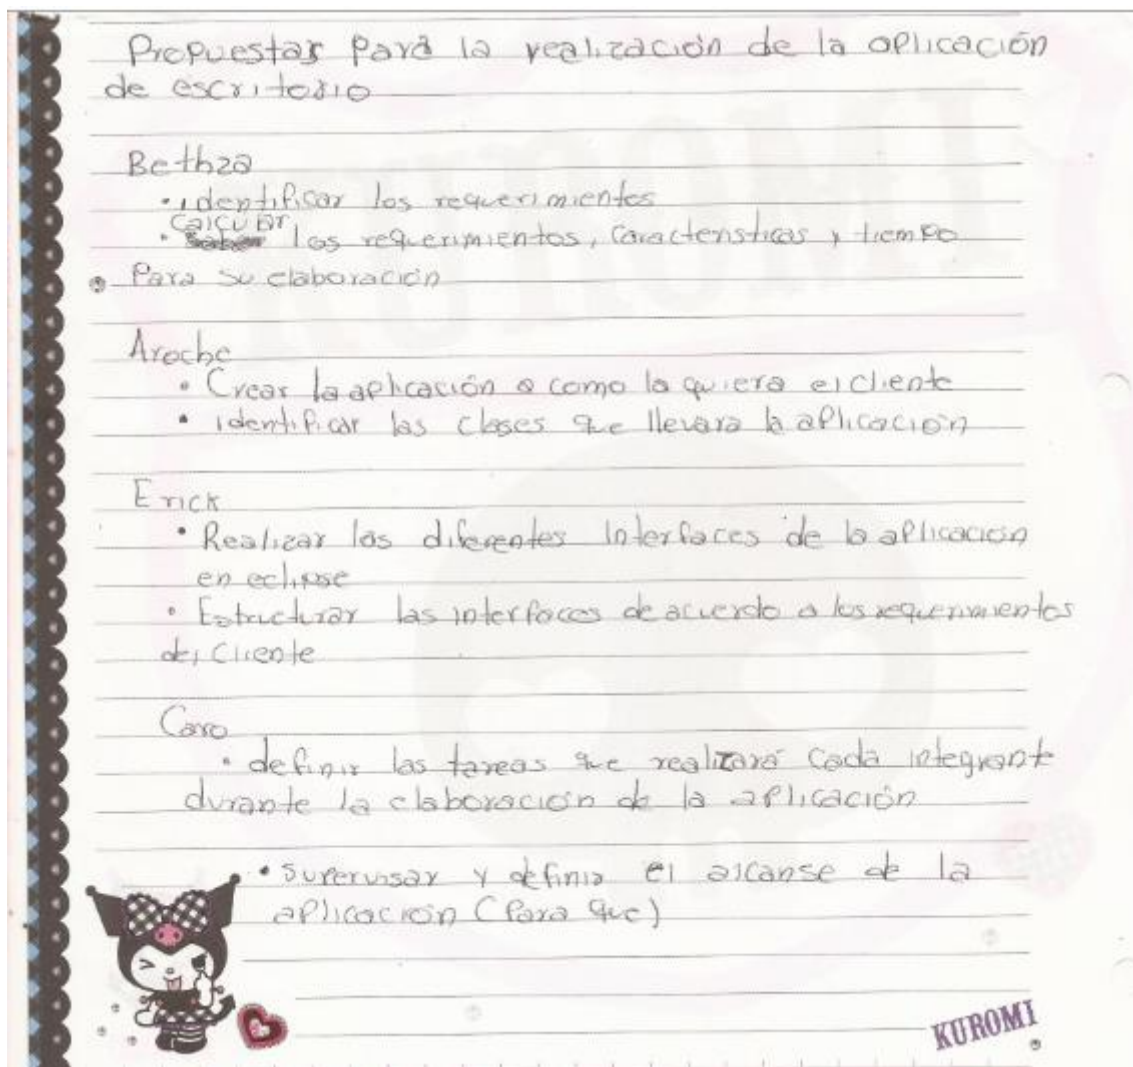 Propuestas para la realización de la aplicación
de escritorio
Bethza
• identificar los requerimientos
• Calcular los requerimientos, características y tiempo
Para su elaboración
Aroche
• Crear la aplicación a como la quiera el cliente
• identificar las clases que llevara la aplicación
Erick
• Realizar las diferentes interfaces de la aplicación
en eclipse
• Estructurar las interfaces de acuerdo a los requerimientos
del cliente
Caro
• definir las tareas que realizará cada integrante
durante la elaboración de la aplicación
• supervisar y definir el alcanse de la
aplicación (Para que)
KUROMI